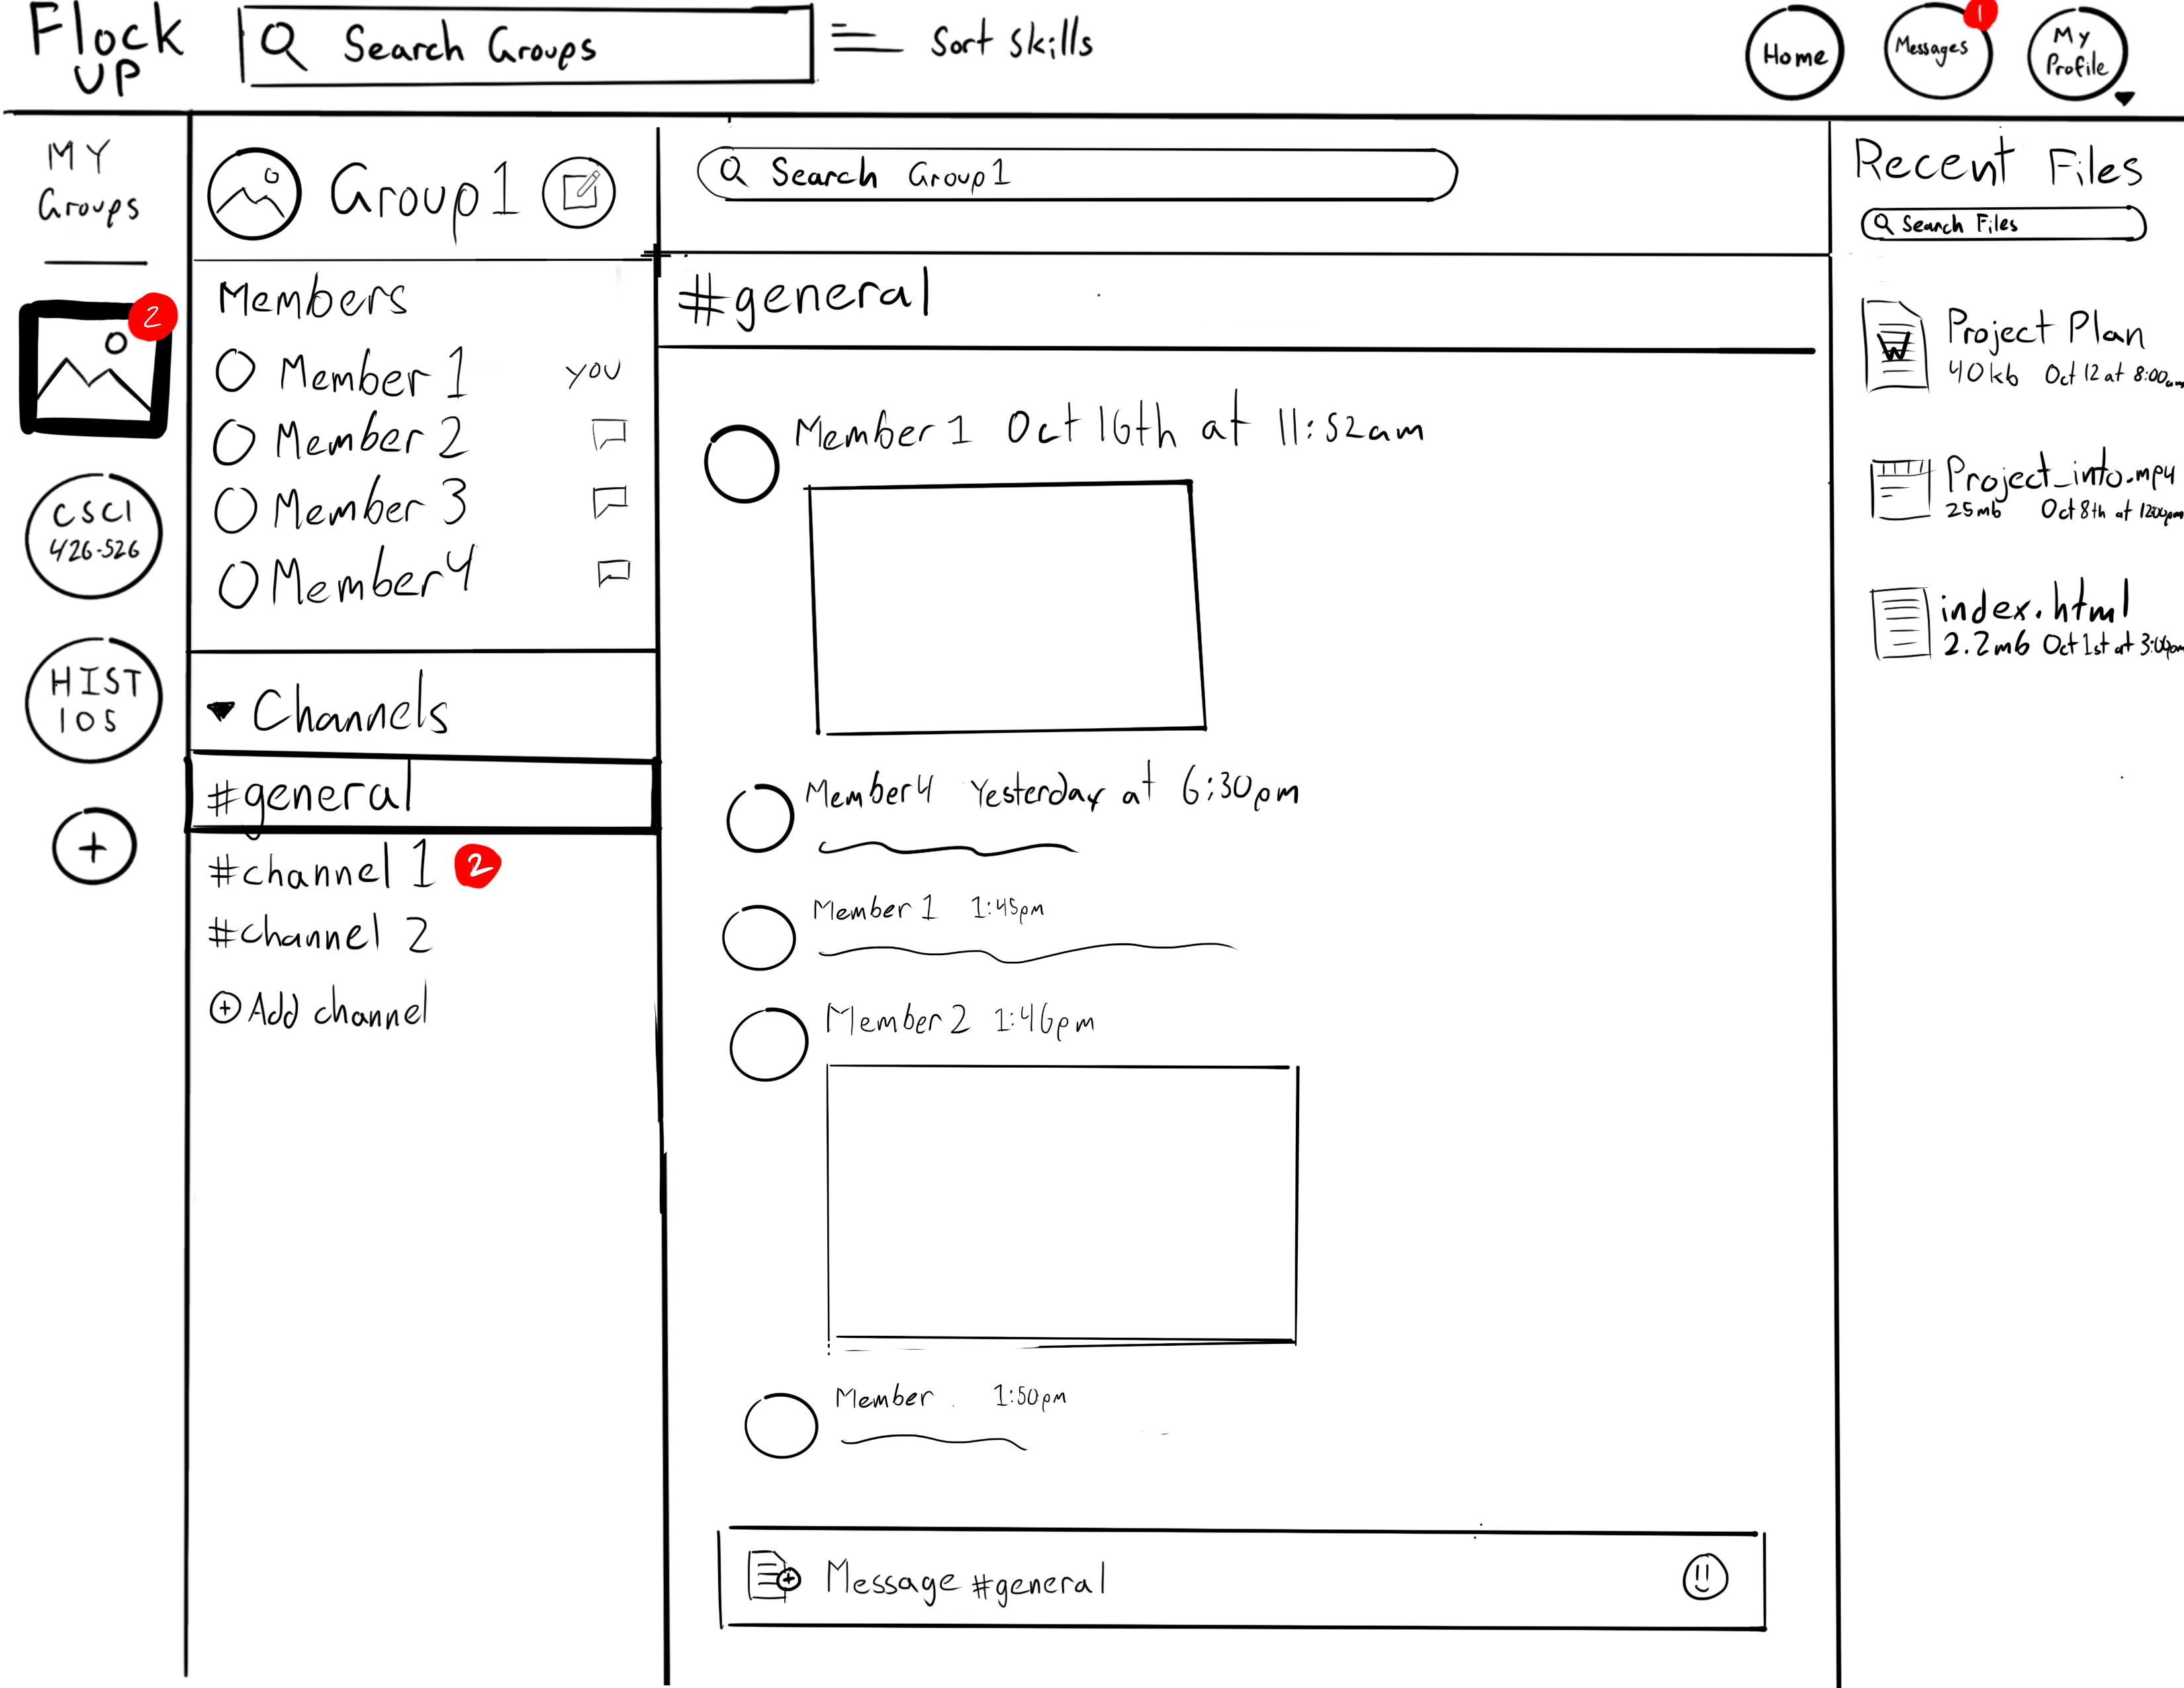 Flock
UP
Search Groups
Sort Skills
Home
Messages
1
My
Profile
MY
Groups
2
CSCI
426-526
HIST
105
+
Group 1
Members
Member 1 you
Member 2
Member 3
Member 4
Channels
#general
#channel 1 2
#channel 2
+ Add channel
Search Group 1
#general
Member 1 Oct 16th at 11:52am
Member 4 Yesterday at 6:30pm
Member 1 1:45pm
Member 2 1:46pm
Member 1:50pm
Message #general
Recent Files
Search Files
W
Project Plan
40kb Oct 12 at 8:00am
Project_into.mp4
25mb Oct 8th at 12:00pm
index.html
2.2mb Oct 1st at 3:00pm